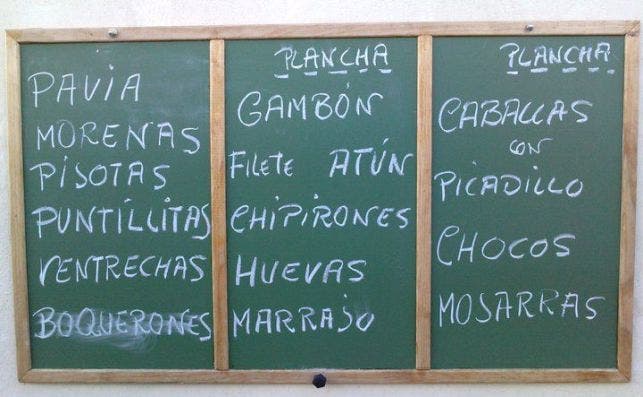 PAVIA
MORENAS
PISOTAS
PUNTILLITAS
VENTRECHAS
BOQUERONES
PLANCHA
GAMBÓN
FILETE ATÚN
CHIPIRONES
HUEVAS
MARRAJO
PLANCHA
CABALLAS
CON
PICADILLO
CHOCOS
MOSARRAS